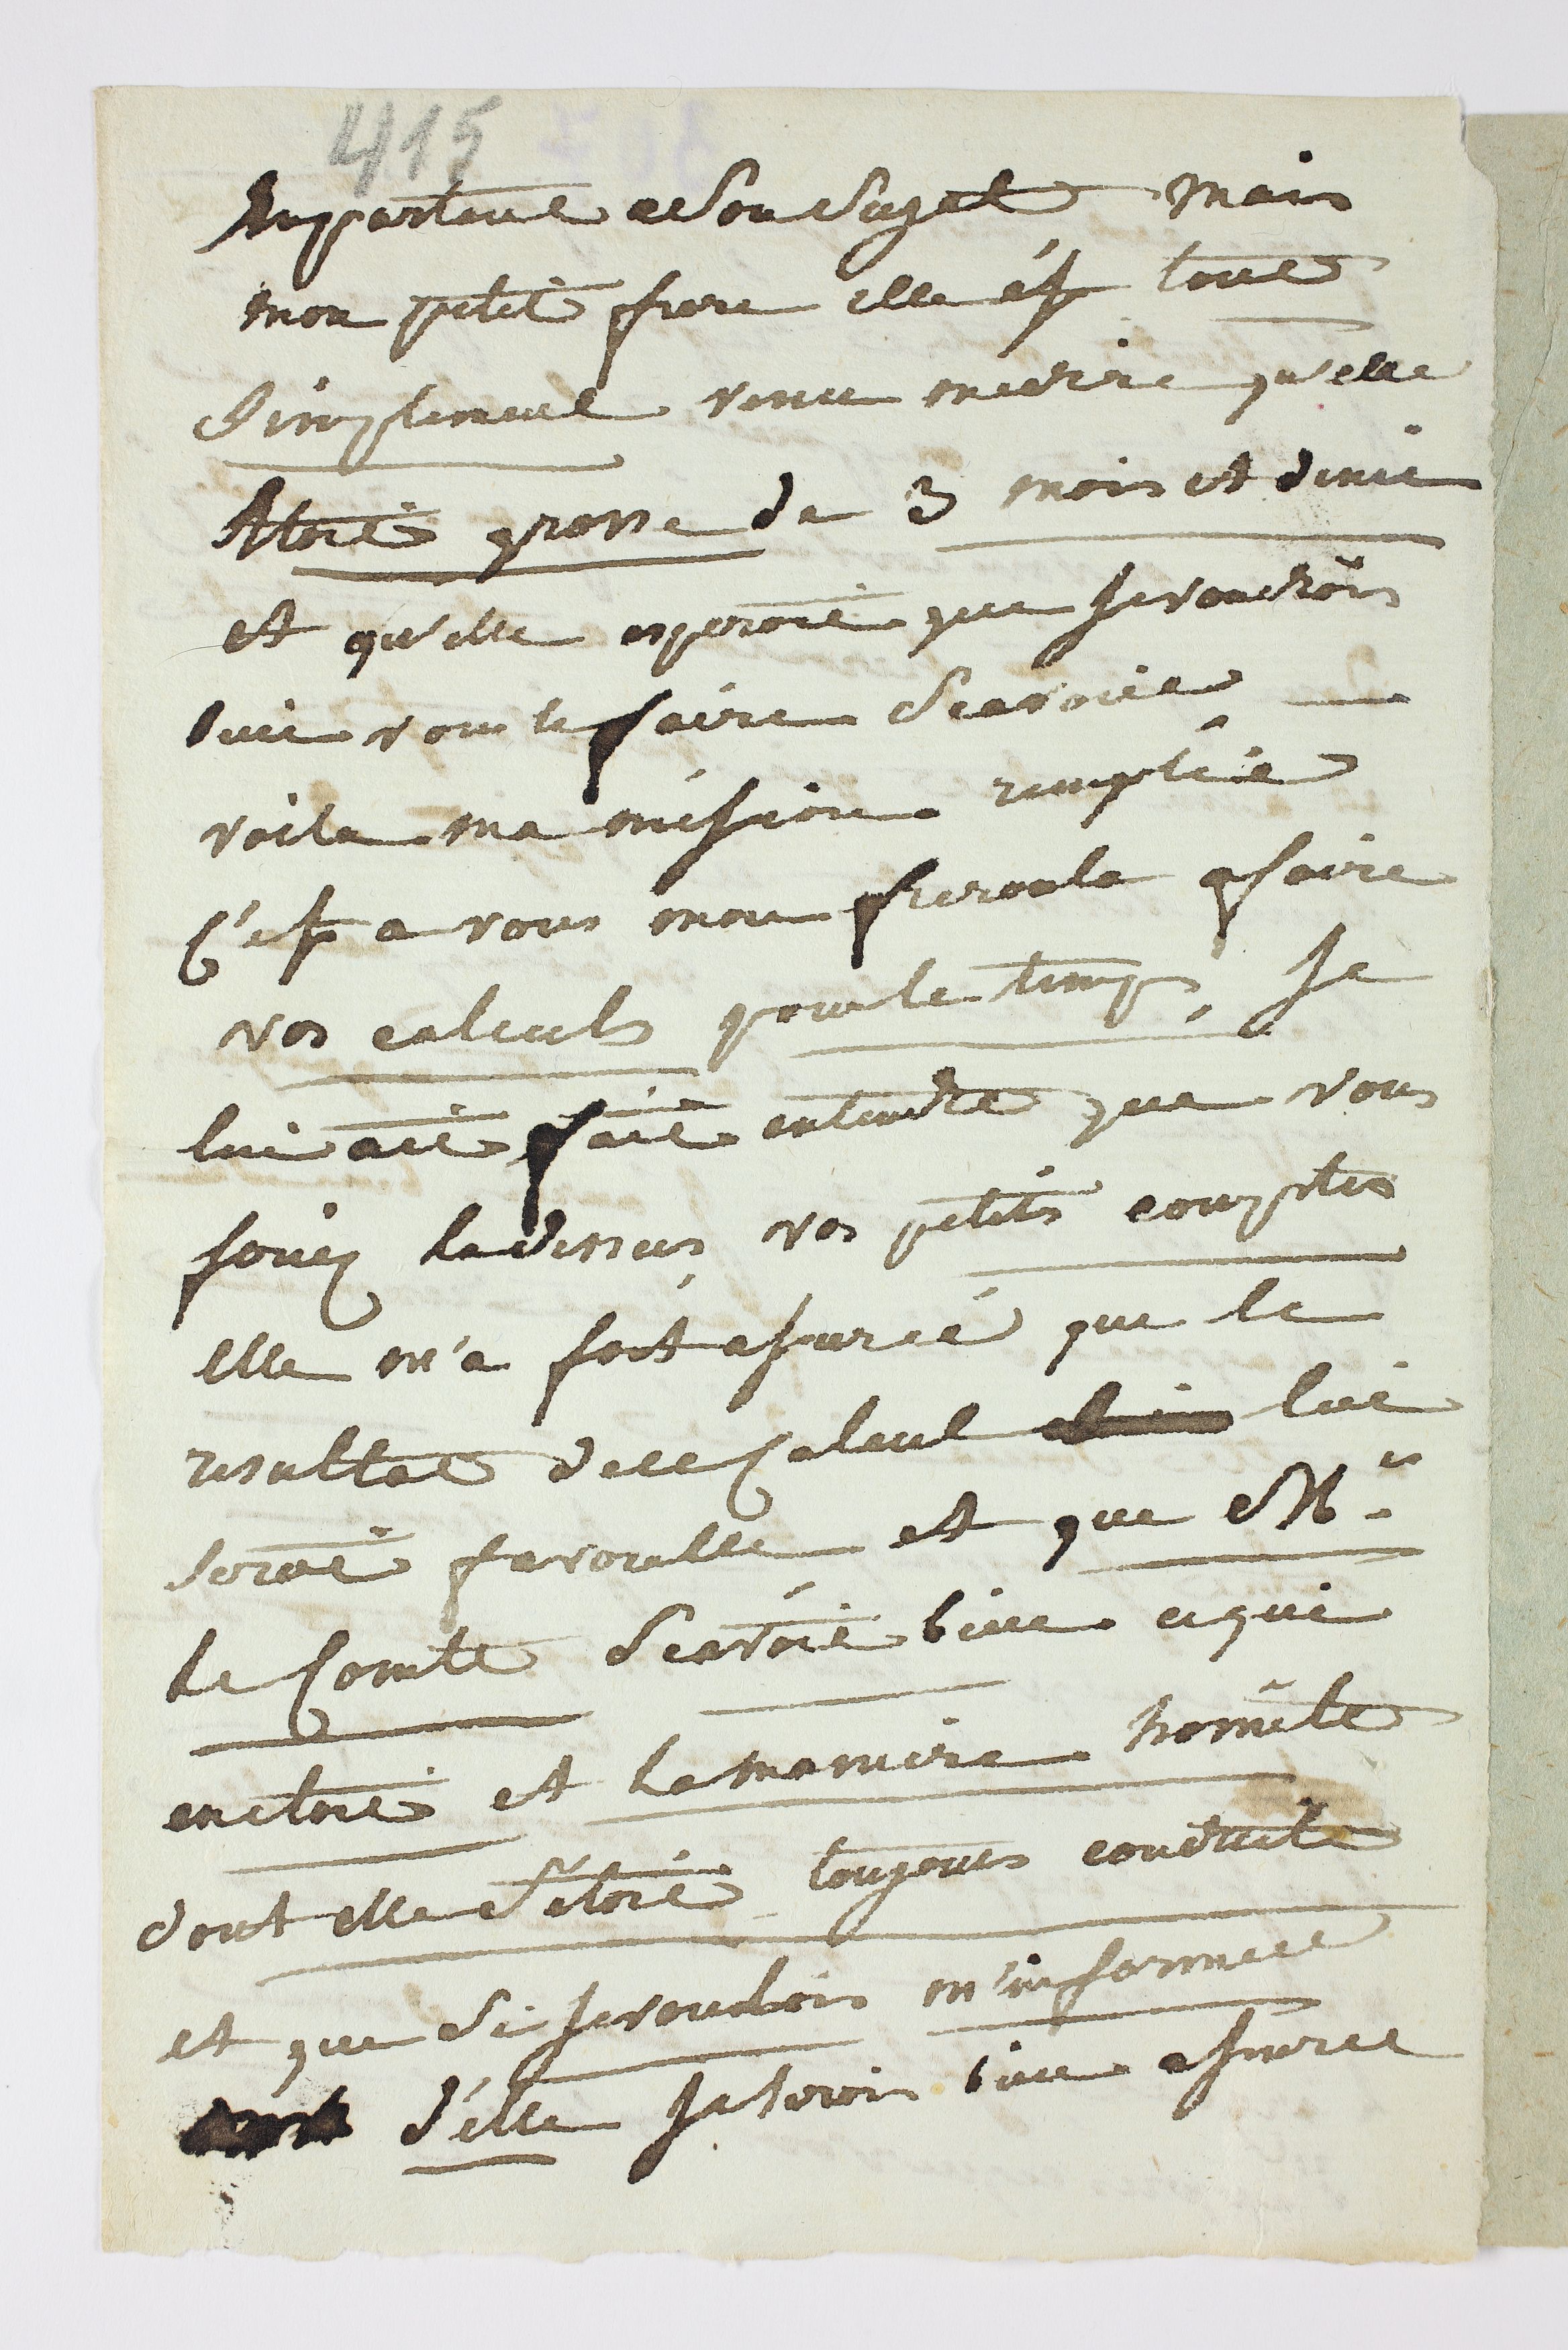 415
Important a son sujet mais
mon petit frere elle ést tout
simplement venu me dire quelle
Etoit grosse de 3 mois et demie
et qu'elle esperoit que je voudrois
bien vous le faire scavoir
voila ma mission remplie
C'est a vous mon frerola a faire
vos calculs pour le temps, Je
lui ait fait entendre que vous
feriez la dessus vos petits comptes
elle m'a fort assurée que le
resultat de ce Calcul lui
seroit favorable et que Mr.
Le Comte scavoit bien ce qui
en etoit et la maniere honnête
dont elle s'etoit toujours conduite
et que si je voulois m'informer
d'elle je serois bien assurée